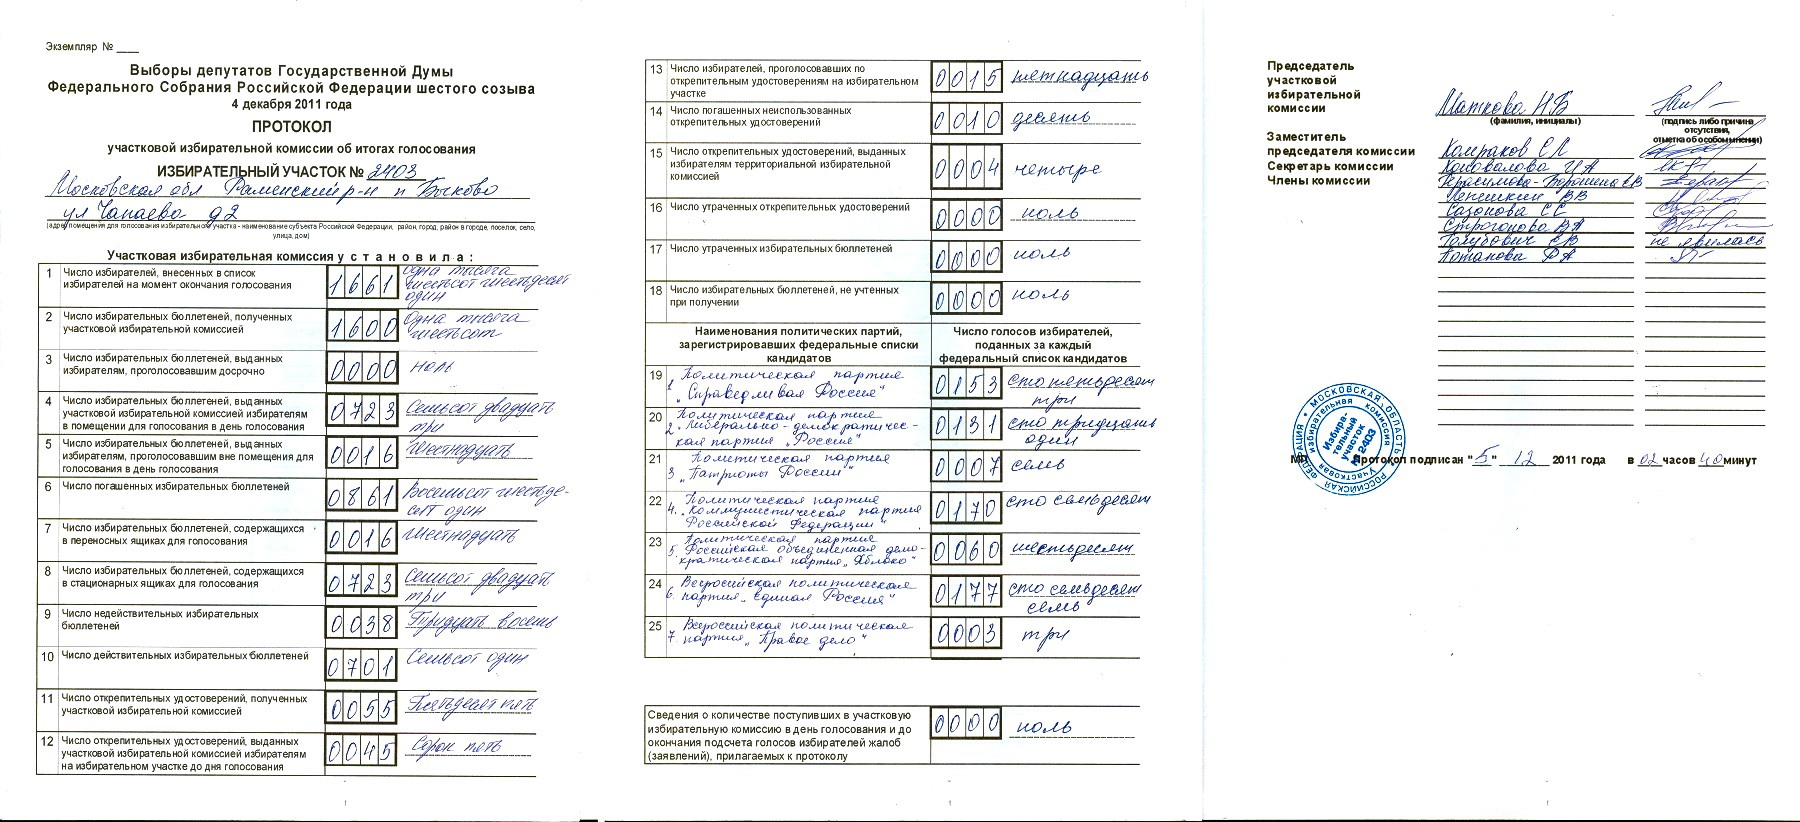 Экземпляр № ___
Выборы депутатов Государственной Думы
Федерального Собрания Российской Федерации шестого созыва
4 декабря 2011 года
ПРОТОКОЛ
участковой избирательной комиссии об итогах голосования
ИЗБИРАТЕЛЬНЫЙ УЧАСТОК № 2403
Московская обл Раменский р-н п Быково
ул Чапаева д2
(адрес помещения для голосования избирательного участка - наименование субъекта Российской Федерации, район, город, район в городе, поселок, село,
улица, дом)
Участковая избирательная комиссия установила:
1 Число избирателей, внесенных в список
избирателей на момент окончания голосования
1661 одна тысяча
шестьсот шестьдесят
один
2 Число избирательных бюллетеней, полученных
участковой избирательной комиссией
1600 Одна тысяча
шестьсот
3 Число избирательных бюллетеней, выданных
избирателям, проголосовавшим досрочно
0000 ноль
4 Число избирательных бюллетеней, выданных
участковой избирательной комиссией избирателям
в помещении для голосования в день голосования
0723 Семьсот двадцать
три
5 Число избирательных бюллетеней, выданных
избирателям, проголосовавшим вне помещения для
голосования в день голосования
0016 Шестнадцать
6 Число погашенных избирательных бюллетеней
0861 Восемьсот шестьде-
сят один
7 Число избирательных бюллетеней, содержащихся
в переносных ящиках для голосования
0016 Шестнадцать
8 Число избирательных бюллетеней, содержащихся
в стационарных ящиках для голосования
0723 Семьсот двадцать
три
9 Число недействительных избирательных
бюллетеней
0038 Тридцать восемь
10 Число действительных избирательных бюллетеней
0701 Семьсот один
11 Число открепительных удостоверений, полученных
участковой избирательной комиссией
0055 Пятьдесят пять
12 Число открепительных удостоверений, выданных
участковой избирательной комиссией избирателям
на избирательном участке до дня голосования
0045 Сорок пять
13 Число избирателей, проголосовавших по
открепительным удостоверениям на избирательном
участке
0015 пятнадцать
14 Число погашенных неиспользованных
открепительных удостоверений
0010 десять
15 Число открепительных удостоверений, выданных
избирателям территориальной избирательной
комиссией
0004 четыре
16 Число утраченных открепительных удостоверений
0000 ноль
17 Число утраченных избирательных бюллетеней
0000 ноль
18 Число избирательных бюллетеней, не учтенных
при получении
0000 ноль
Наименования политических партий,
зарегистрировавших федеральные списки
кандидатов
Число голосов избирателей,
поданных за каждый
федеральный список кандидатов
19 1. Политическая партия
"Справедливая Россия"
0153 сто пятьдесят
три
20 2. Политическая партия
"Либерально-демократичес-
кая партия "России"
0131 сто тридцать
один
21 3 Политическая партия
"Патриоты России"
0007 семь
22 4. Политическая партия
"Коммунистическая партия
Российской Федерации"
0170 сто семьдесят
23 5. Политическая партия
"Российская объединенная демо-
кратическая партия "Яблоко"
0060 шестьдесят
24 6. Всероссийская политическая
партия "Единая Россия"
0177 сто семьдесят
семь
25 7 Всероссийская политическая
партия "Правое дело"
0003 три
Сведения о количестве поступивших в участковую
избирательную комиссию в день голосования и до
окончания подсчета голосов избирателей жалоб
(заявлений), прилагаемых к протоколу
0000 ноль
Председатель
участковой
избирательной
комиссии
Маткова Н.Б
(фамилия, инициалы)
(подпись либо причина
отсутствия,
отметка об особом мнении)
Заместитель
председателя комиссии
Комраков СЛ
Секретарь комиссии
Коновалова И А
Члены комиссии
Герасимова-Ворошина ЕВ
Пенешкин ВВ
Сазонова СС
Строгонова ВА
Голубович ЕВ не явилась
Потапова Ф А
РОССИЙСКАЯ ФЕДЕРАЦИЯ • МОСКОВСКАЯ ОБЛАСТЬ
Участковая избирательная комиссия
Избира-
тельный
участок
№ 2403
МП Протокол подписан "5" 12 2011 года в 02 часов 40 минут